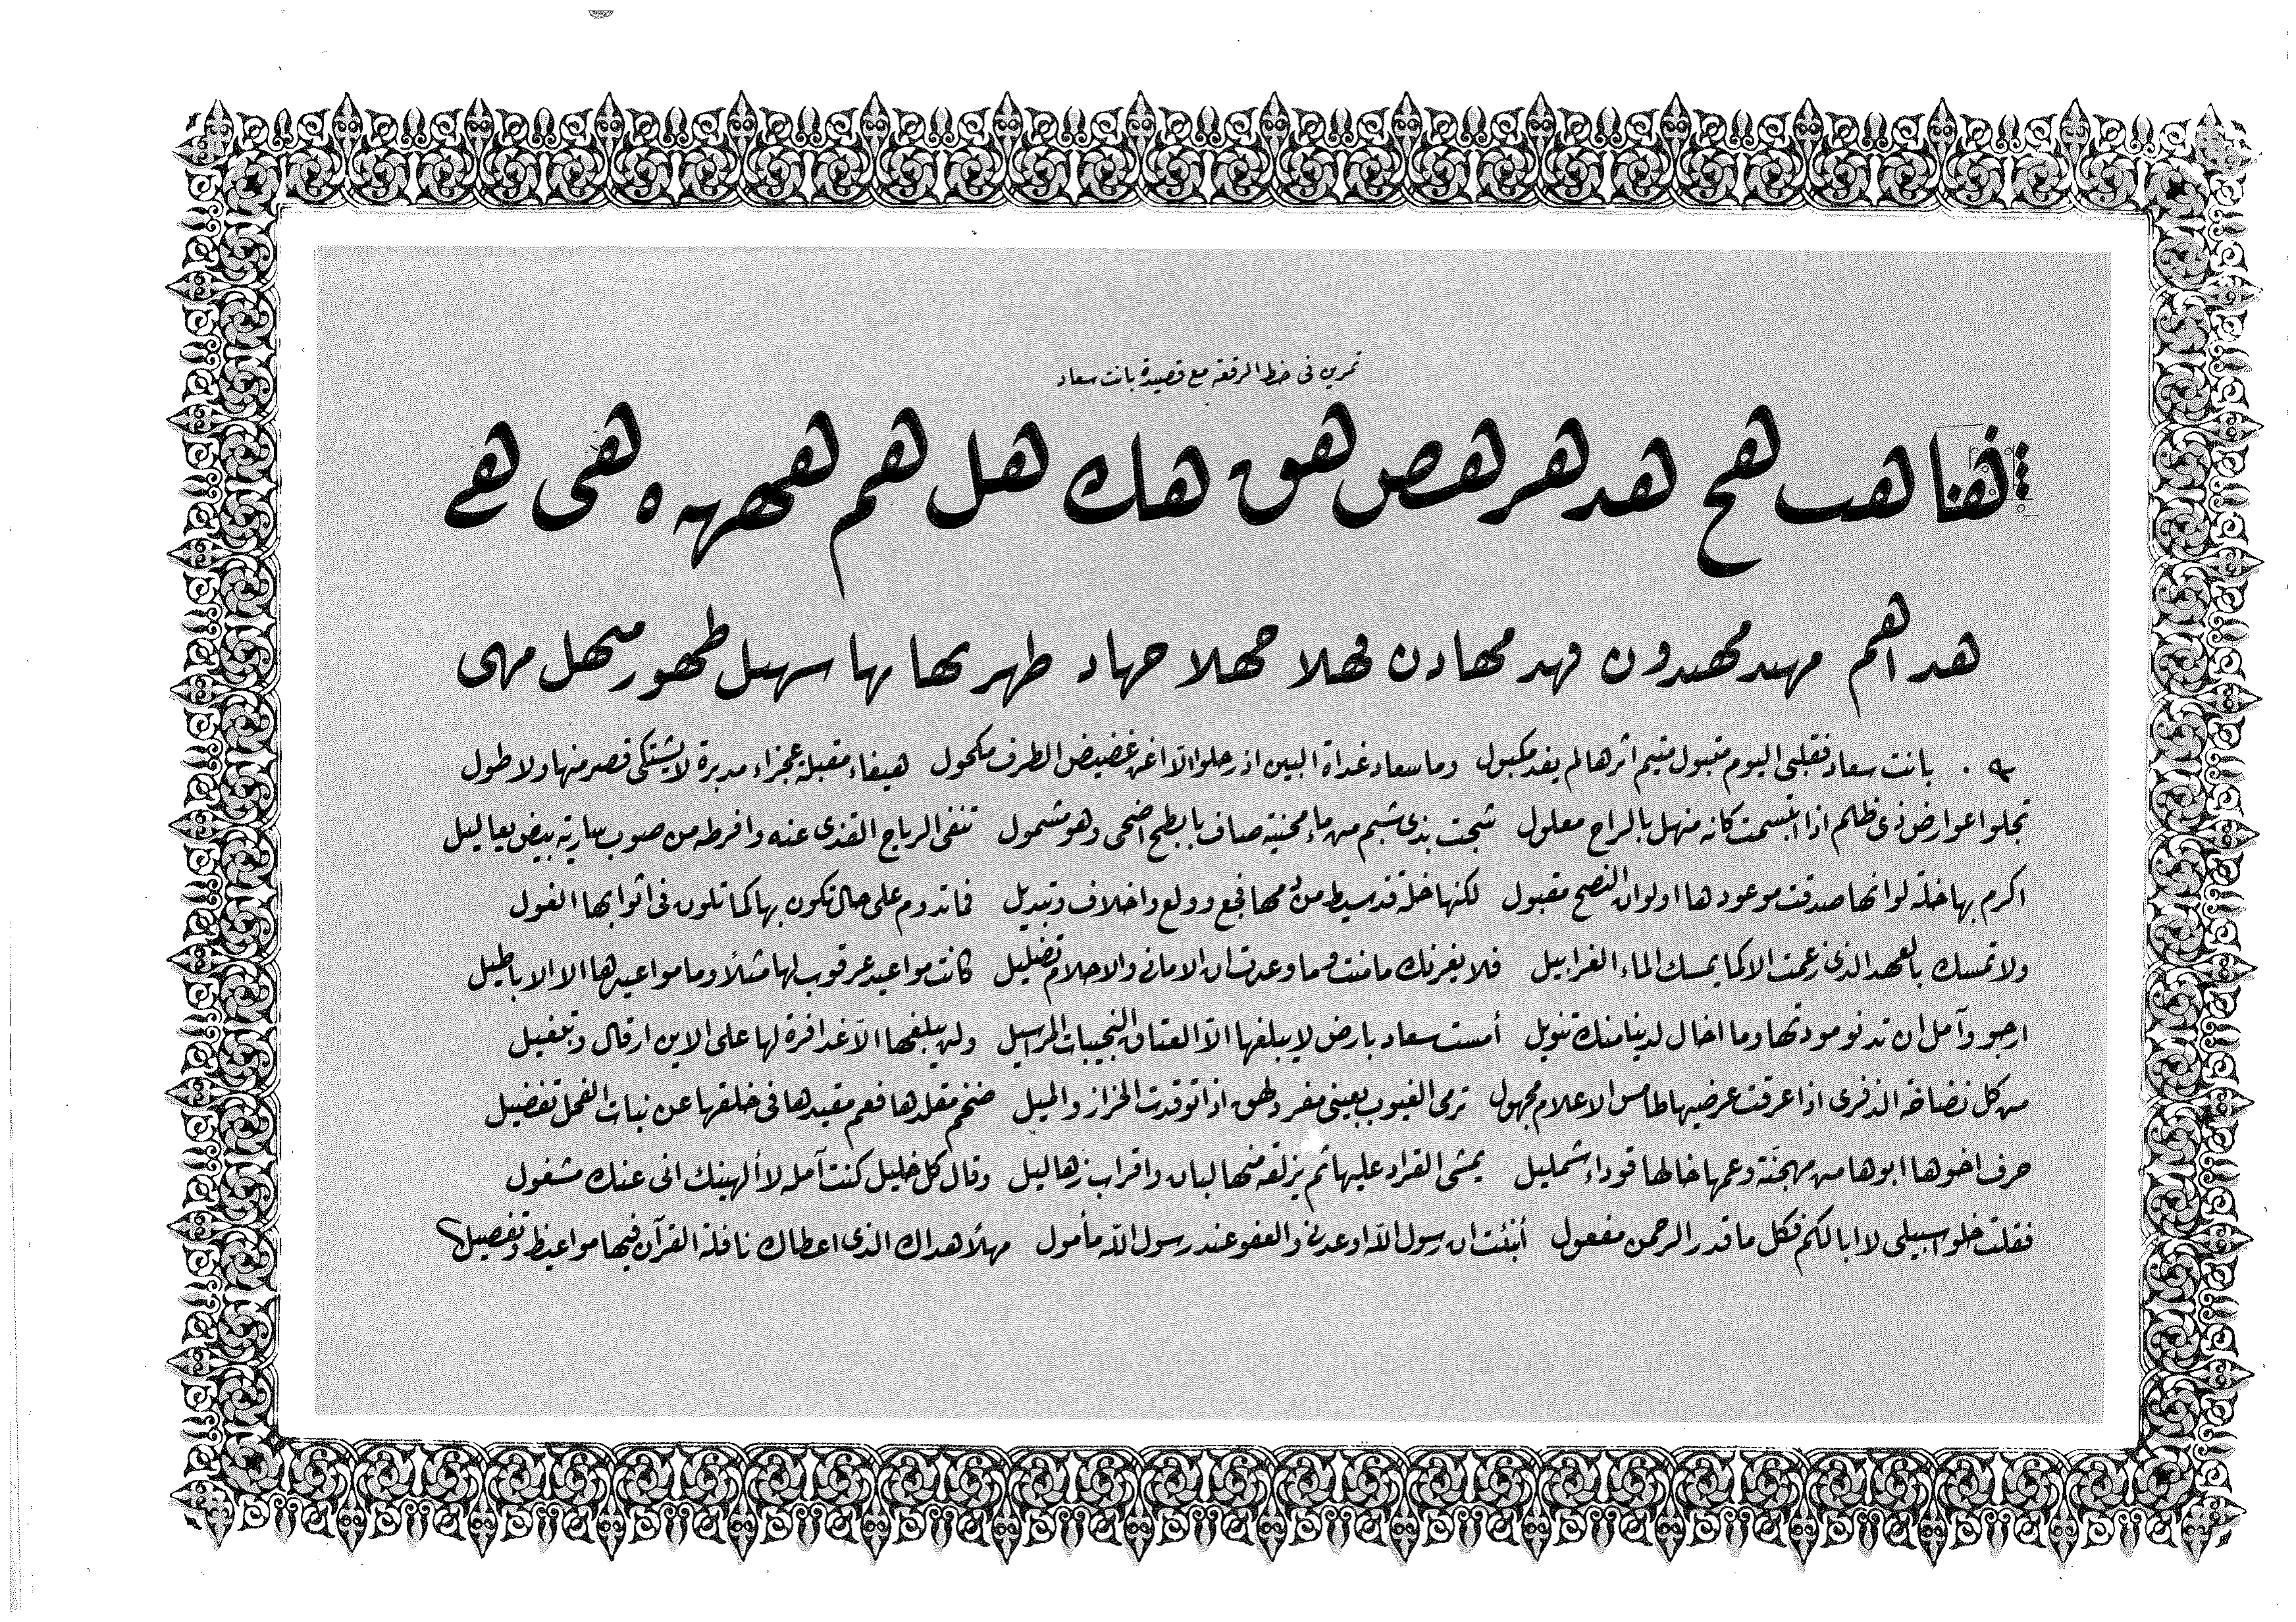 تمرين فى خط الرقعة مع قصيدة بانت سعاد
ها هب هح هد هر هص هق هك هل هم همهه ه هى هے
هد اهم مهد مهدون فهد مهادن فهلا مهلا جهاد طهر بها بها سهل طهور سهل مهى
بانت سعاد فقلبى اليوم متبول متيم اثرها لم يفد مكبول وما سعاد غداة البين اذ رحلوا الّا اغن غضيض الطرف مكحول هيفاء مقبلة عجزاء مدبرة لا يشتكى قصر منها ولا طول
تجلوا عوارض ذى ظلم اذا ابتسمت كانه منهل بالراح معلول شجت بذى شبم من ماء محنية صاف بابطح اضحى وهو مشمول تنفى الرياح القذى عنه وافرطه من صوب سارية بيض يعاليل
اكرم بها خلة لو انها صدقت موعودها او لو ان النصح مقبول لكنها خلة قد سيط من دمها فجع وولع واخلاف وتبديل فما تدوم على حال تكون بها كما تلون فى اثوابها الغول
ولا تمسك بالعهد الذى زعمت الا كما يمسك الماء الغرابيل فلا يغرنك ما منت وما وعدت ان الامانى والاحلام تضليل كانت مواعيد عرقوب لها مثلاً وما مواعيدها الا الاباطيل
ارجو وآمل ان تدنو مودتها وما اخال لدينا منك تنويل أمست سعاد بارض لا يبلغها الّا العتاق النجيبات المراسيل ولن يبلغها الّا غدافرة لها على الاين ارقال وتبغيل
من كل نضاخة الذفرى اذا عرقت عرضيها طامس الاعلام مجهول ترمى الغيوب بعينى مفرد لهق اذا توقدت الحزاز والميل ضخم مقلدها فعم مقيدها فى خلقها عن نبات الفحل تفضيل
حرف اخوها ابوها من مهجنة وعمها خالها قوداء شمليل يمشى القراد عليها ثم يزلقه منها لبان واقراب زهاليل وقال كل خليل كنت آمله لا ألهينك انى عنك مشغول
فقلت خلوا سبيلى لا ابا لكم فكل ما قدر الرحمن مفعول أنبئت ان رسول اللّه اوعدنى والعفو عند رسول اللّه مأمول مهلاً هداك الذى اعطاك نافلة القرآن فيها مواعيظ وتفصيل